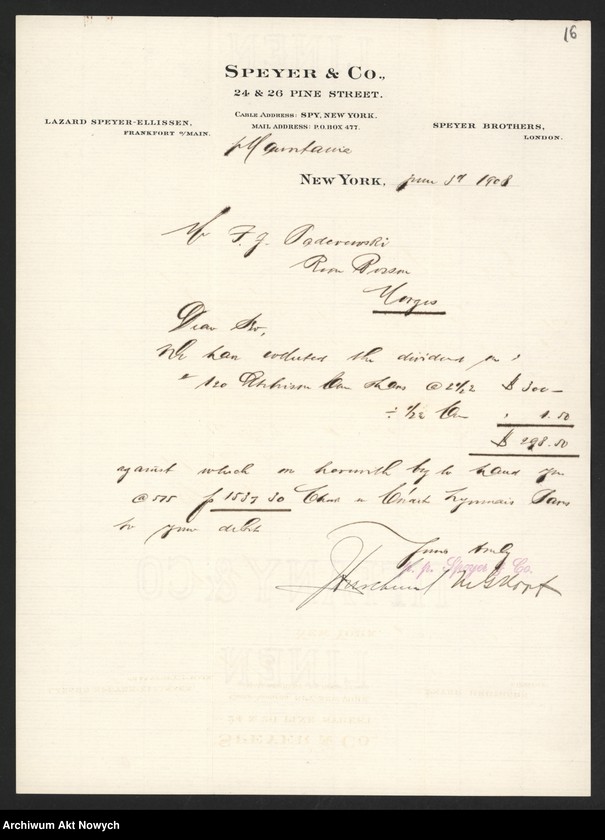 16
SPEYER & CO.,
24 & 26 PINE STREET.
CABLE ADDRESS: SPY, NEW YORK.
MAIL ADDRESS: P.O. BOX 477.
LAZARD SPEYER-ELLISSEN,
FRANKFORT o/MAIN.
SPEYER BROTHERS,
LONDON.
p Mauretania
NEW YORK, 1908
Mr Paderewski
Riom Bosson
Morges
Dear Sir,
We have collected the dividend on
120 Atchison Com Shares @ 2 1/2 $ 300 –
1.50
$ 298.50
against which we herewith beg to hand you
@ 515 f 1537 30 Crédit Lyonnais Paris
to your debit
Yours truly
p. p. Speyer & Co.
LINEN
Archiwum Akt Nowych